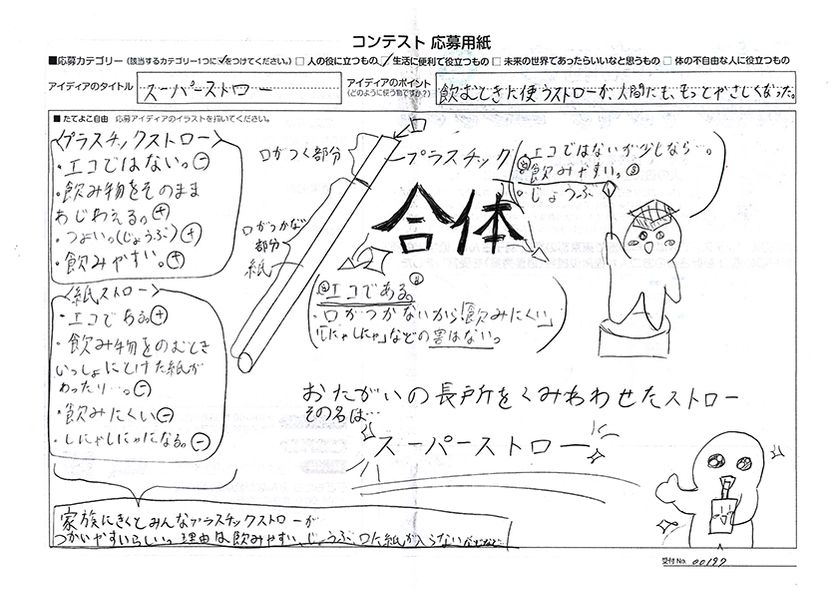 コンテスト 応募用紙
■応募カテゴリー (該当するカテゴリー1つに✓をつけてください。) □ 人の役に立つもの ☑ 生活に便利で役立つもの □ 未来の世界であったらいいなと思うもの □ 体の不自由な人に役立つもの
アイディアのタイトル スーパーストロー
アイディアのポイント
(どのように使う物ですか?)
飲むときに使うストローが、人間にも、もっとやさしくなった。
■ たてよこ自由 応募アイディアのイラストを描いてください。
〈プラスチックストロー〉
・エコではない。⊖
・飲み物をそのまま
あじわえる。⊕
・つよい。(じょうぶ)⊕
・飲みやすい。⊕
〈紙ストロー〉
・エコである。⊕
・飲み物をのむとき
いっしょにとけた紙が
わったり…。⊖
・飲みにくい⊖
・しにゃしにゃになる。⊖
口がつく部分
プラスチック
エコではないが少しなら…。
飲みやすい。
・じょうぶ
口がつかない
部分
紙
合体
エコである。
・口がつかないから「飲みにくい」
「しにゃしにゃ」などの害はない。
おたがいの長戸所をくみわわせたストロー
その名は…
スーパーストロー
家族にきくとみんなプラスチックストローが
つかいやすいらしい。理由は飲みやすい、じょうぶ、口に紙が入らないなどなど…
受付No. 00197